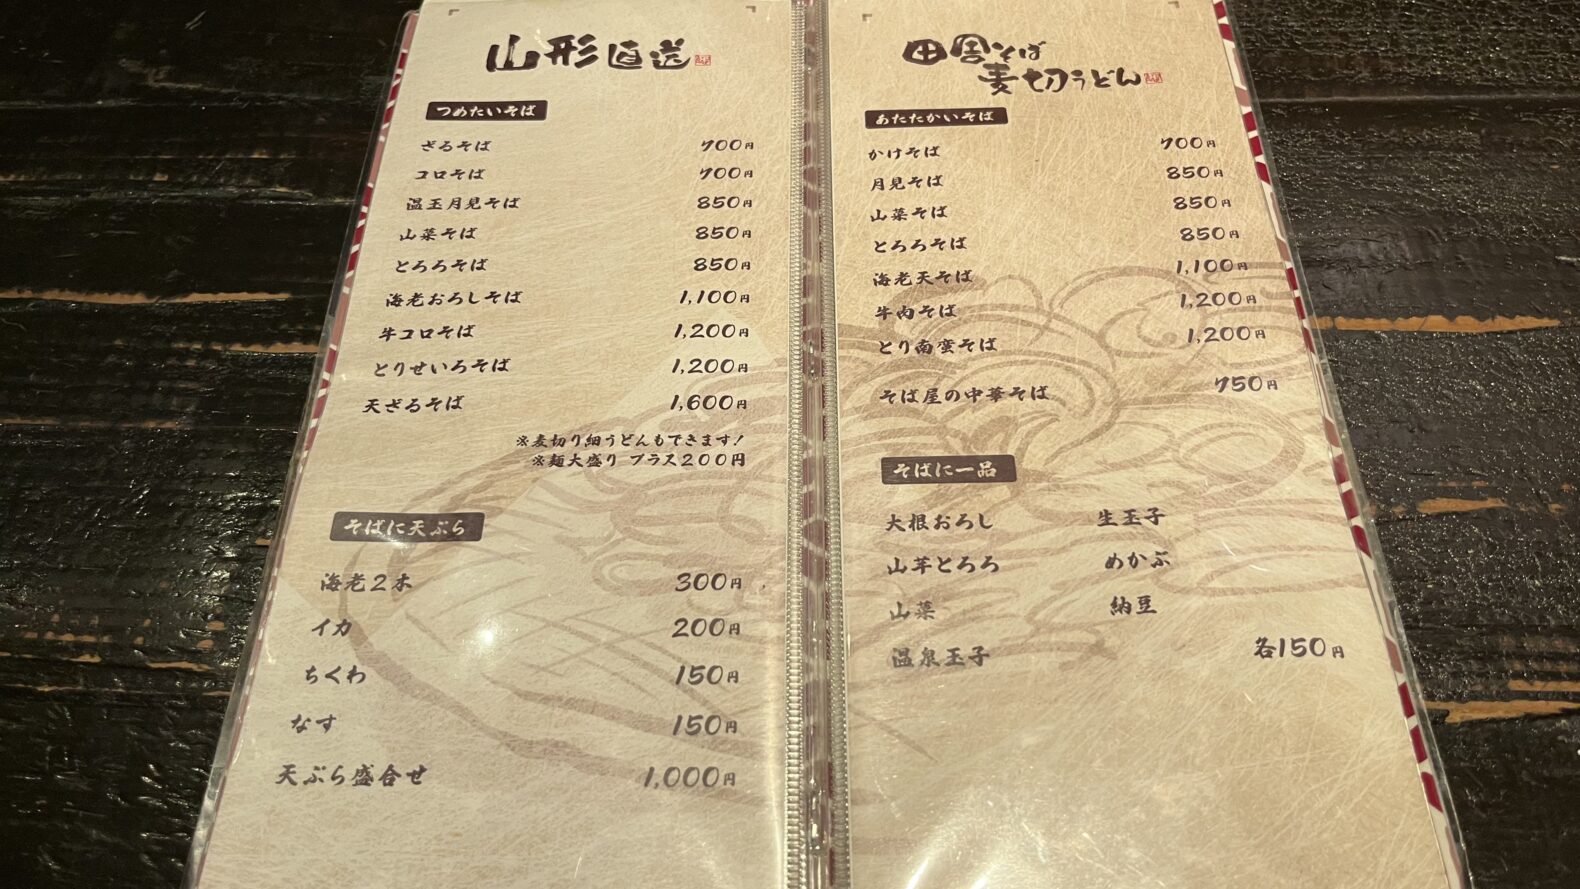 山形直送
つめたいそば
ざるそば 700円
コロそば 700円
温玉月見そば 850円
山菜そば 850円
とろろそば 850円
海老おろしそば 1,100円
牛コロそば 1,200円
とりせいろそば 1,200円
天ざるそば 1,600円
※麦切り細うどんもできます!
※麺大盛り プラス200円
そばに天ぷら
海老2本 300円
イカ 200円
ちくわ 150円
なす 150円
天ぷら盛合せ 1,000円
田舎そば
麦切うどん
あたたかいそば
かけそば 700円
月見そば 850円
山菜そば 850円
とろろそば 850円
海老天そば 1,100円
牛肉そば 1,200円
とり南蛮そば 1,200円
そば屋の中華そば 750円
そばに一品
大根おろし 生玉子
山芋とろろ めかぶ
山菜 納豆
温泉玉子 各150円